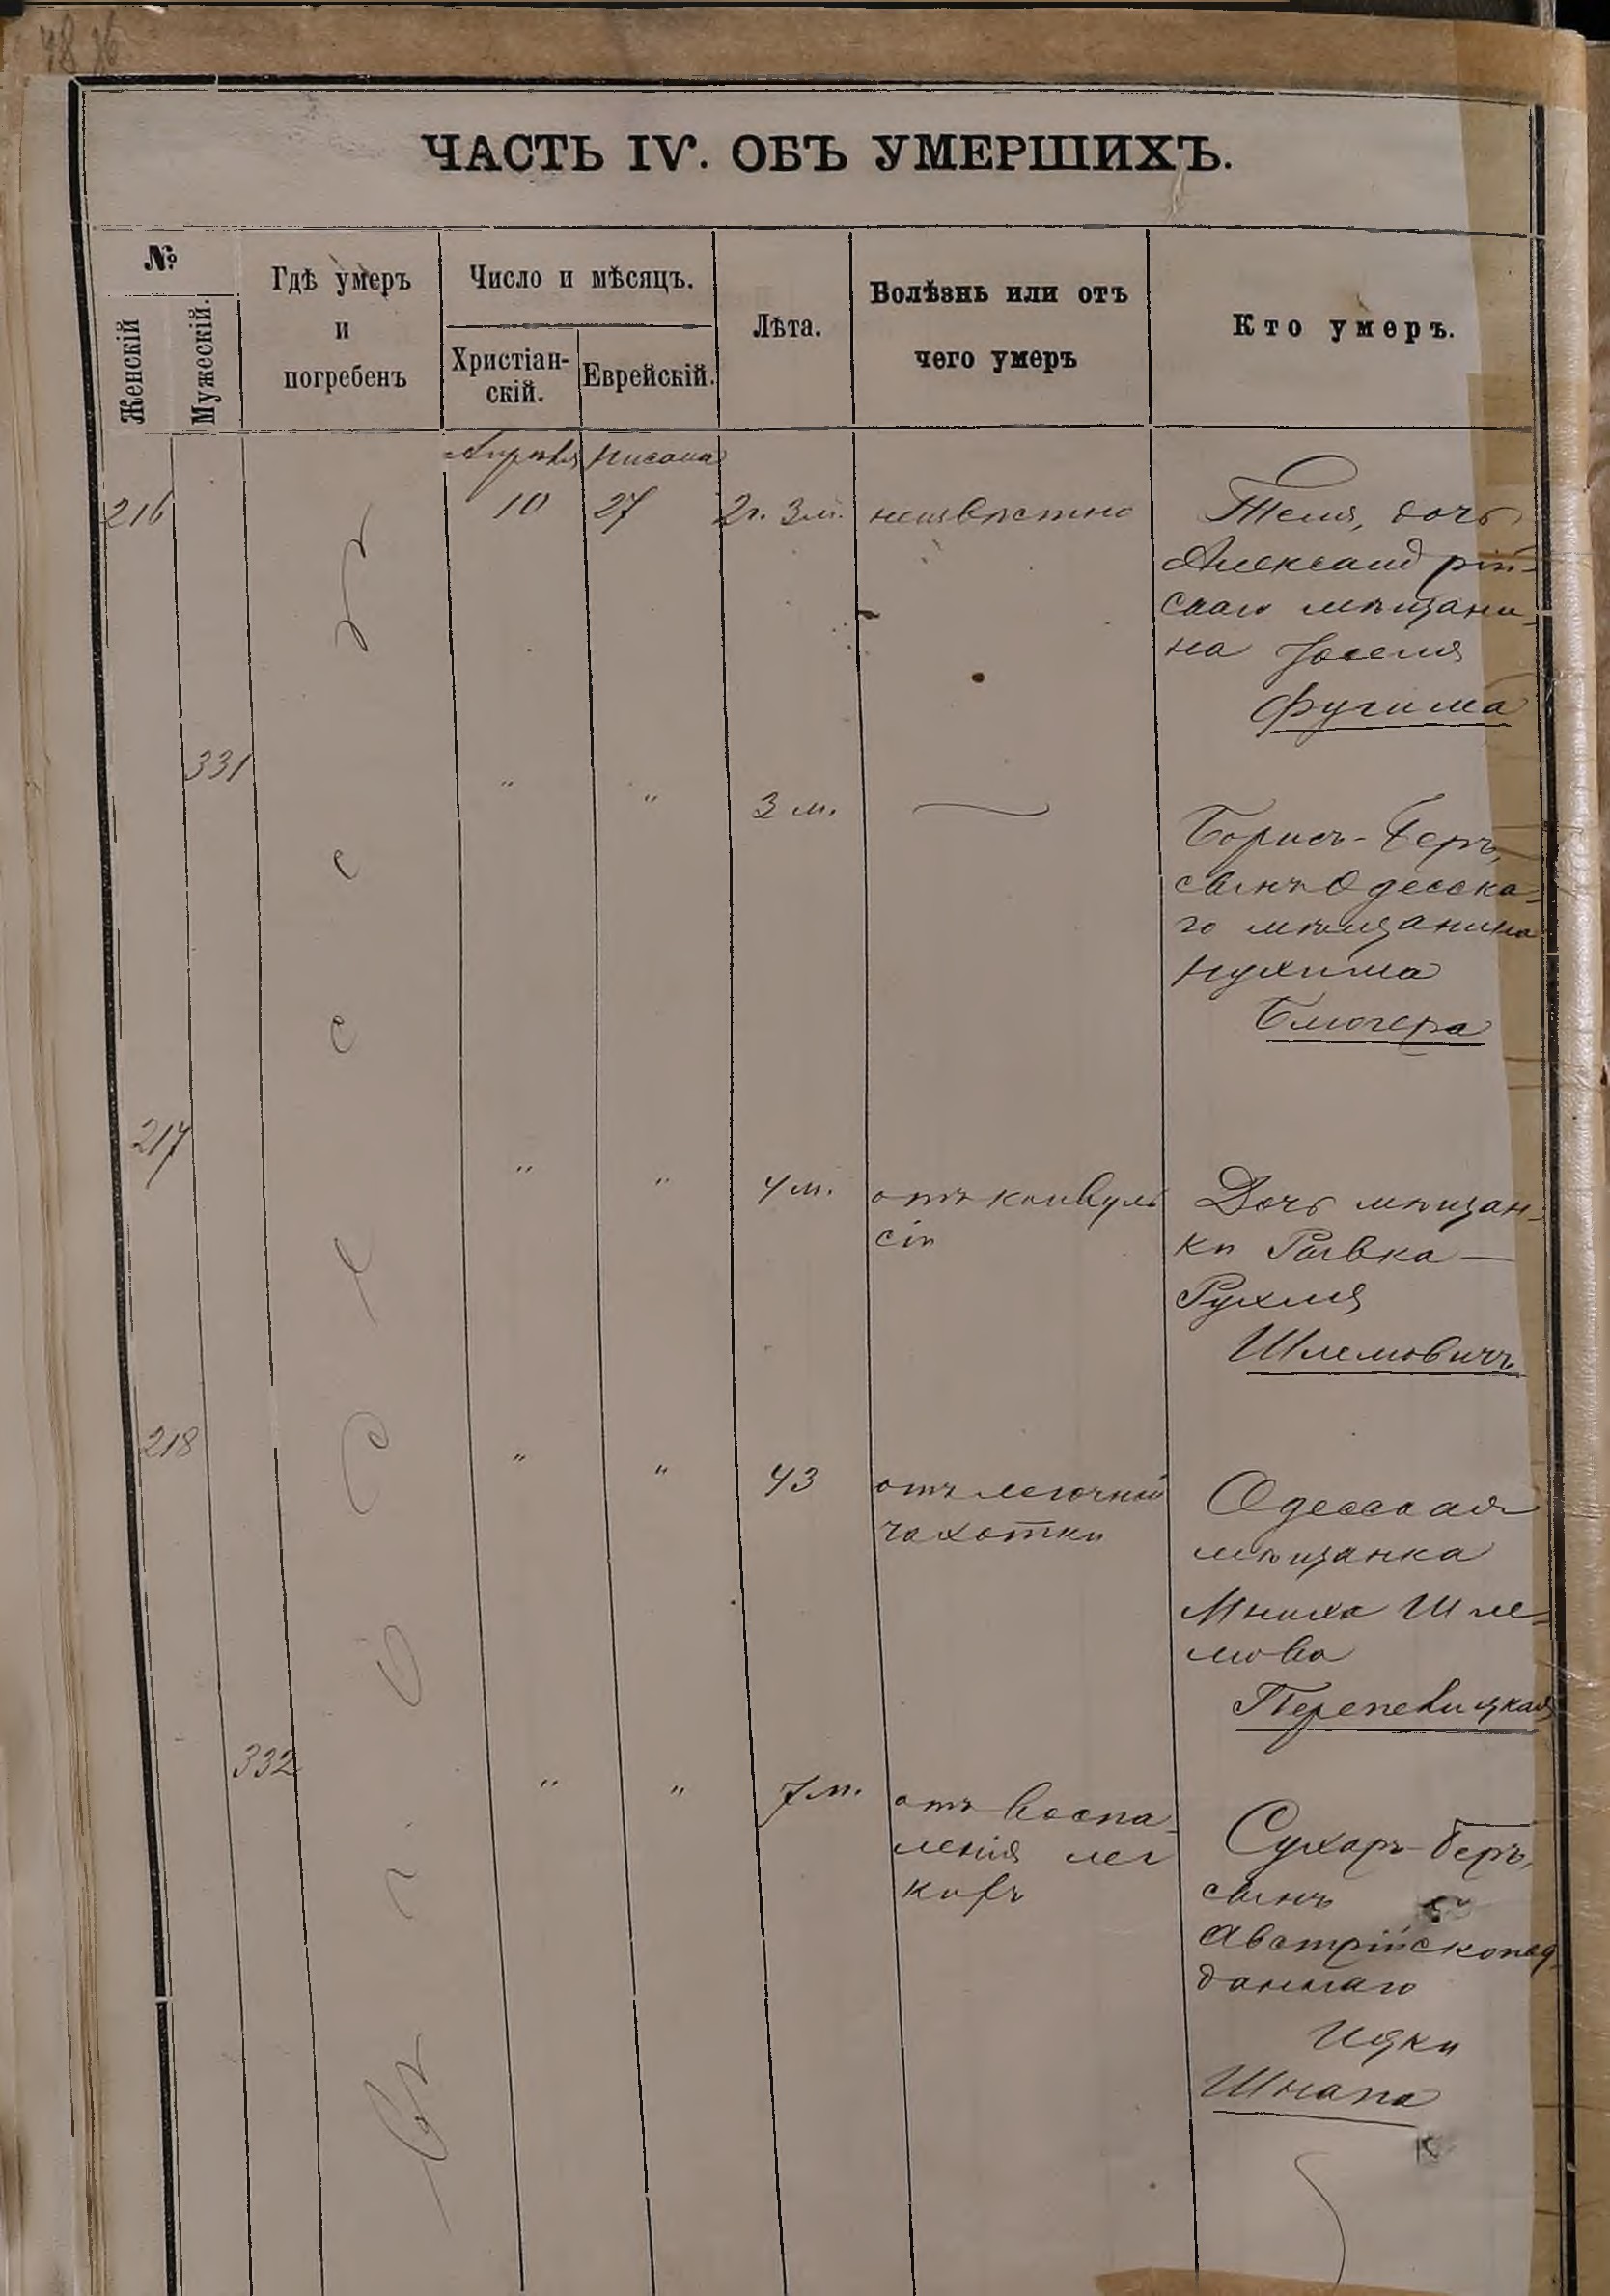 ЧАСТЬ IV. ОБЪ УМЕРШИХЪ.
№
Женскій
Мужескій.
Гдѣ умеръ
и
погребенъ
Число и мѣсяцъ.
Христіан-
скій.
Еврейскій.
Лѣта.
Болѣзнь или отъ
чего умеръ
Кто умеръ.
Апрѣля Нисана
216 10 27 2г. 3м. неизвѣстно
дочь
Александрій-
скаго мѣщани-
на Іоселя
Фугима
331 " " 3 м. —
Борисъ-Беръ,
сынъ Одесска-
го мѣщанина
Нухима
Блюгера
217 " " 4 м. отъ конвуль
сіи
Дочь мѣщан-
ки Рывка —
Рухля
Шлемовичъ
218 " " 43 отъ легочной
чахотки
Одесская
мѣщанка
Мниха Шле-
мова
Перепелицкая
332 " " 7 м. отъ воспа-
ленія лег
кихъ
Сухаръ-Беръ,
сынъ
Австрійскопод-
даннаго
Ицки
Шнапа